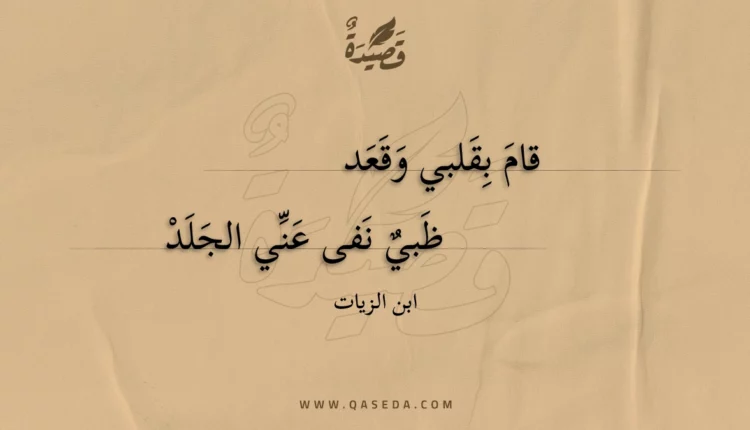 قَصِيْدَةٌ
قامَ بِقَلبي وَقَعَد
ظَبيٌ نَفى عَنِّي الجَلَدْ
ابن الزيات
WWW.QASEDA.COM